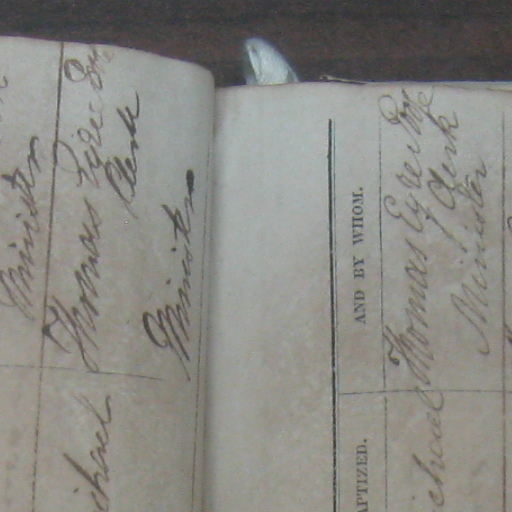 Minister
ichael Thomas Eyre Poye
Clerk
Minister
APTIZED. AND BY WHOM.
ichael Thomas Eyre Poye
Clerk
Minister